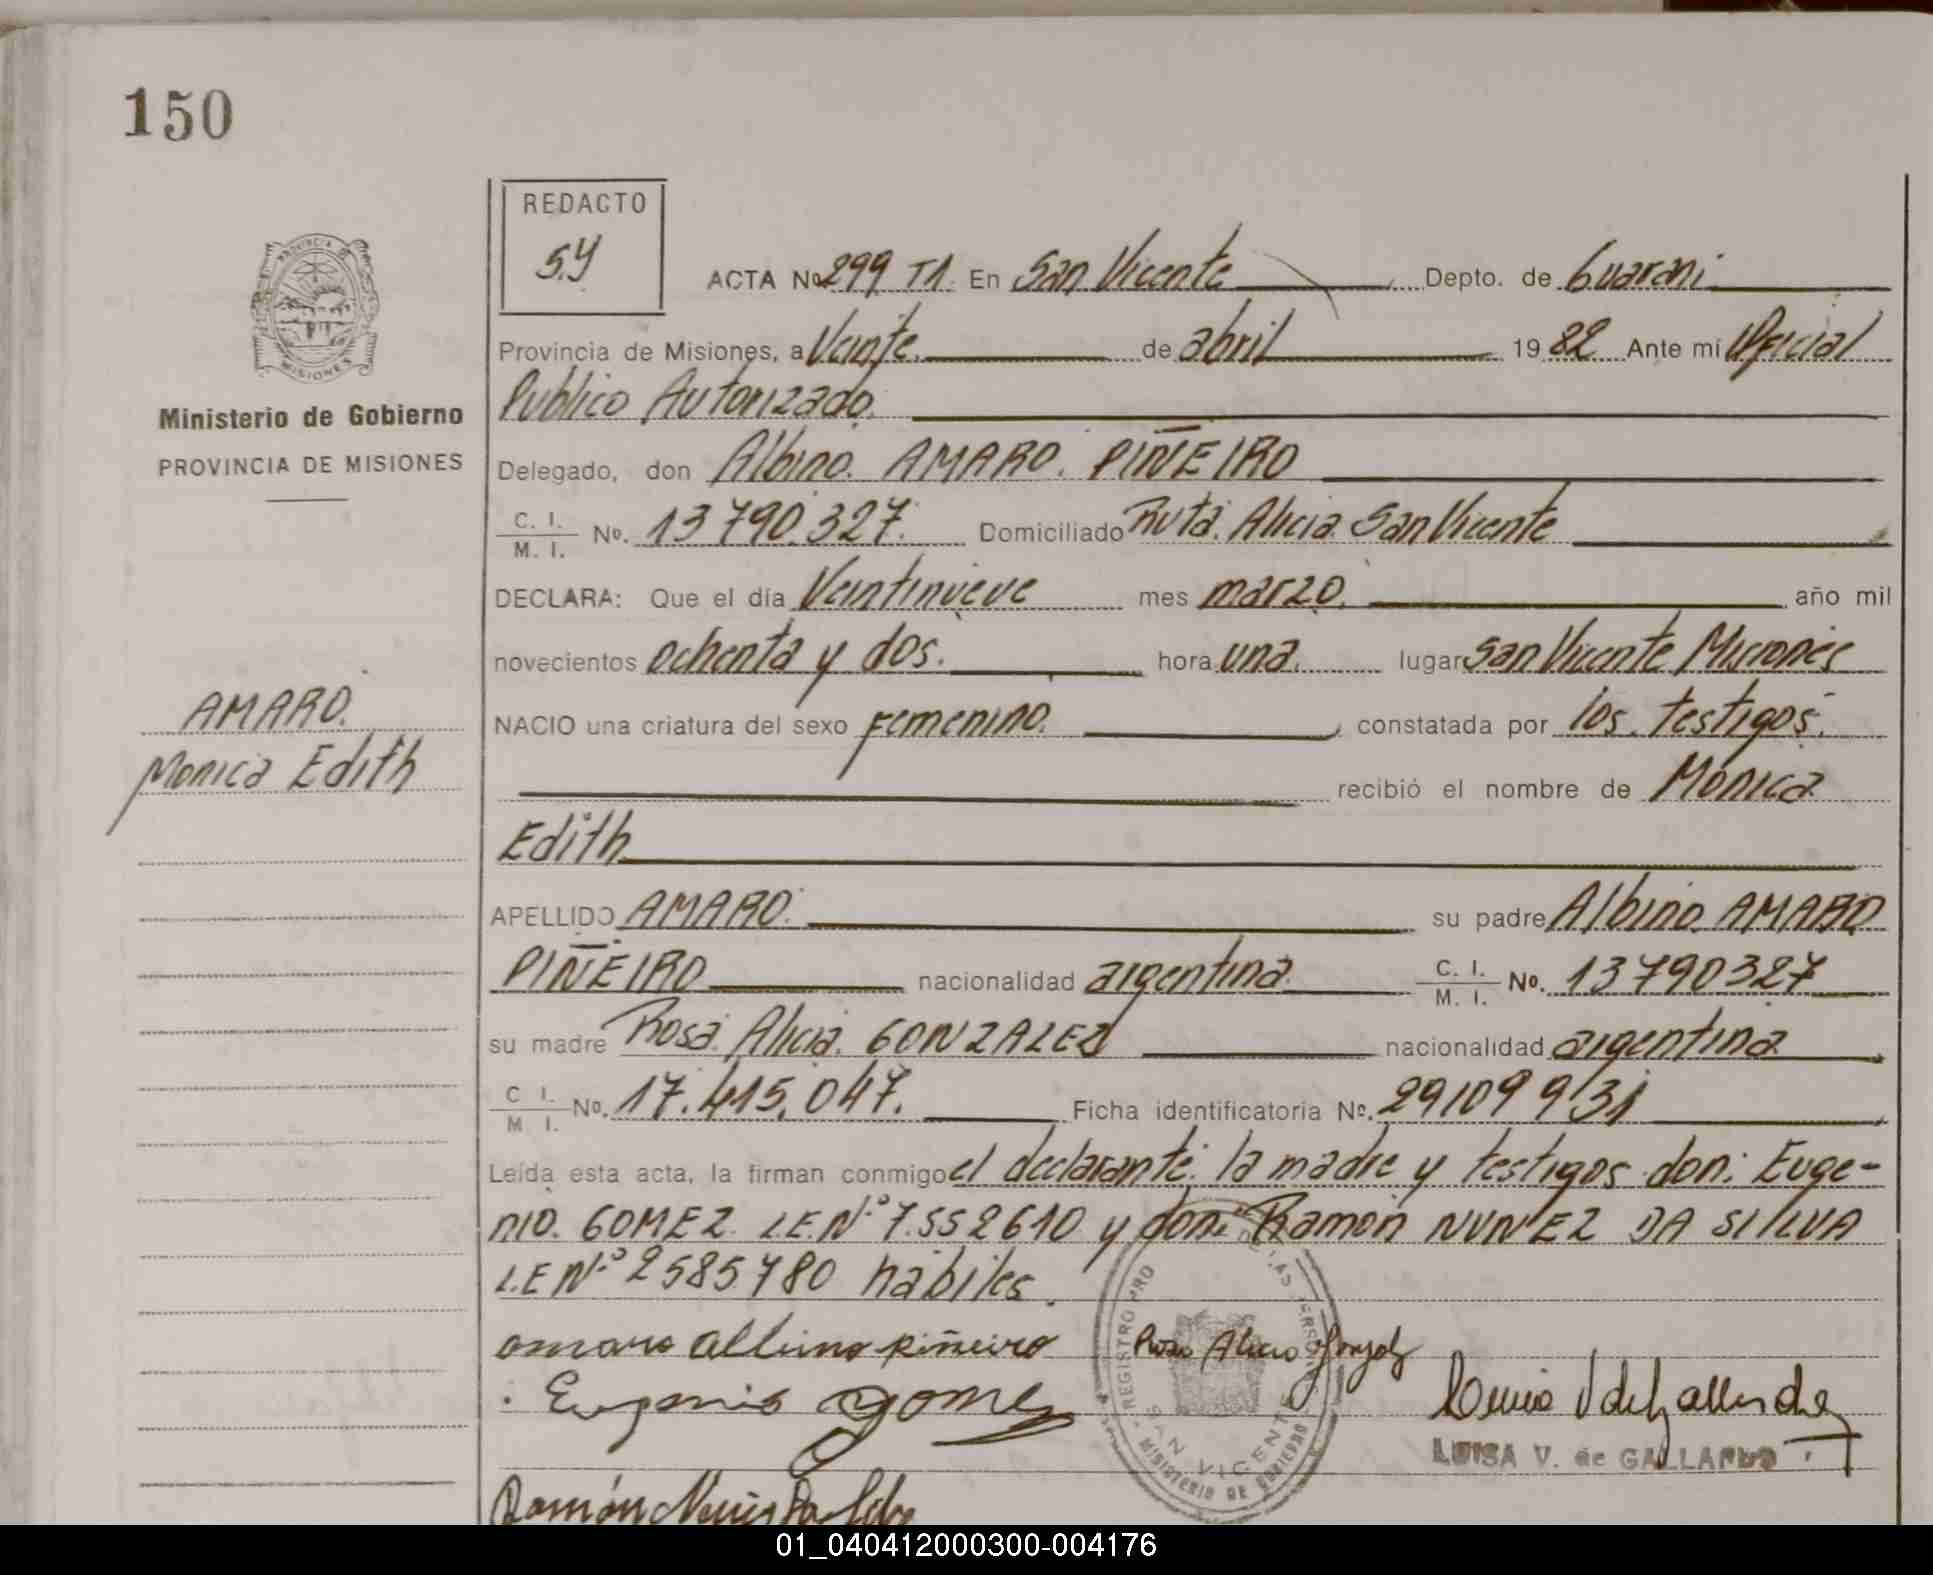 150
REDACTO
S.Y
ACTA No 299 T1. En San Vicente Depto. de Guaraní
Provincia de Misiones, a Veinte de abril 19 82 Ante mí Oficial
Publico Autorizado.
Ministerio de Gobierno
PROVINCIA DE MISIONES
Delegado, don Albino. AMARO. PIÑEIRO
C. I. / M. I. No. 13790.327. Domiciliado Ruta. Alicia. San Vicente
DECLARA: Que el día Veintinueve mes marzo. año mil
novecientos ochenta y dos. hora una. lugar San Vicente Misiones
AMARO.
NACIO una criatura del sexo Femenino. constatada por los. testigos.
Monica Edith
recibió el nombre de Mónica
Edith
APELLIDO AMARO. su padre Albino. AMARO
PIÑEIRO nacionalidad argentina. C. I. / M. I. No. 13790327
su madre Rosa. Alicia. GONZALEZ nacionalidad argentina
C I. / M I. No. 17.415.047. Ficha identificatoria No. 29109931
Leída esta acta, la firman conmigo el declarante. la madre y testigos don: Euge-
nio. GOMEZ. L.E.N° 7.552610 y don: Ramón NUNEZ DA SILVA
L.E N° 2585.780 hábiles.
amaro albino piñeiro Rosa Alicia Gonzalez
Eugenio gomez
LUISA V. de GALLARDO
REGISTRO PRO DE LAS PERSONAS
SAN VICENTE
MINISTERIO DE GOBIERNO
Ramón Nuñes Da Silva
01_040412000300-004176